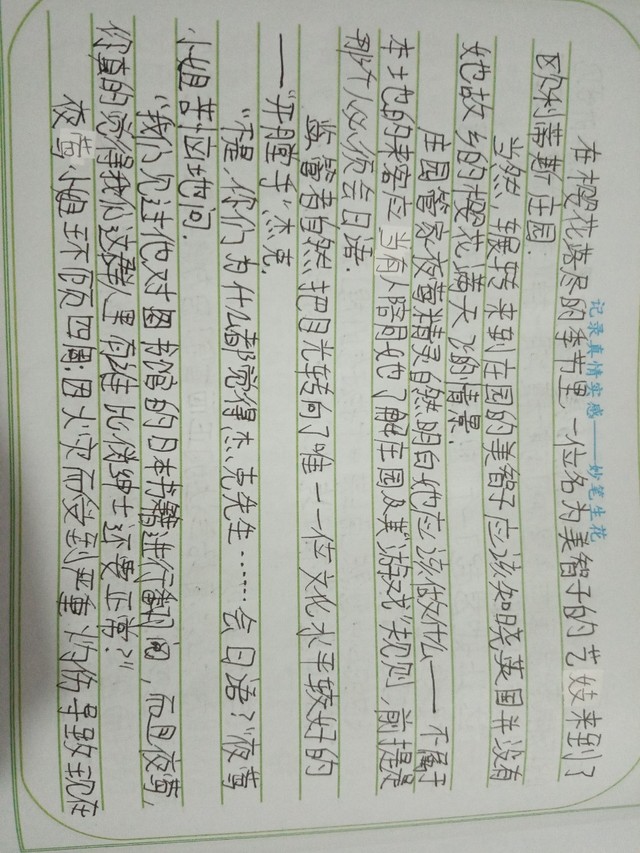 记录真情实感——妙笔生花
在樱花落尽的季节里,一位名为美智子的艺妓来到了
欧利蒂斯庄园.
当然,辗转来到庄园的美智子应该知晓英国并没有
她故乡的樱花满天飞的情景.
庄园管家夜莺精灵自然明白她应该做什么——不属于
本土地的来客应当有人陪同她了解庄园及其“游戏”规则,前提是
那个人必须会日语.
监管者自然把目光转向了唯一一位文化水平较好的
——“开膛手”杰克.
“不是,你们为什么都觉得杰克先生……会日语?”夜莺
小姐苦恼地问.
“我们见过他对图书馆的日本书籍进行翻阅,而且夜莺,
你真的觉得我们这群人里有谁比你绅士还要正常?”
夜莺小姐环顾四周:因火灾而受到严重灼伤导致现在